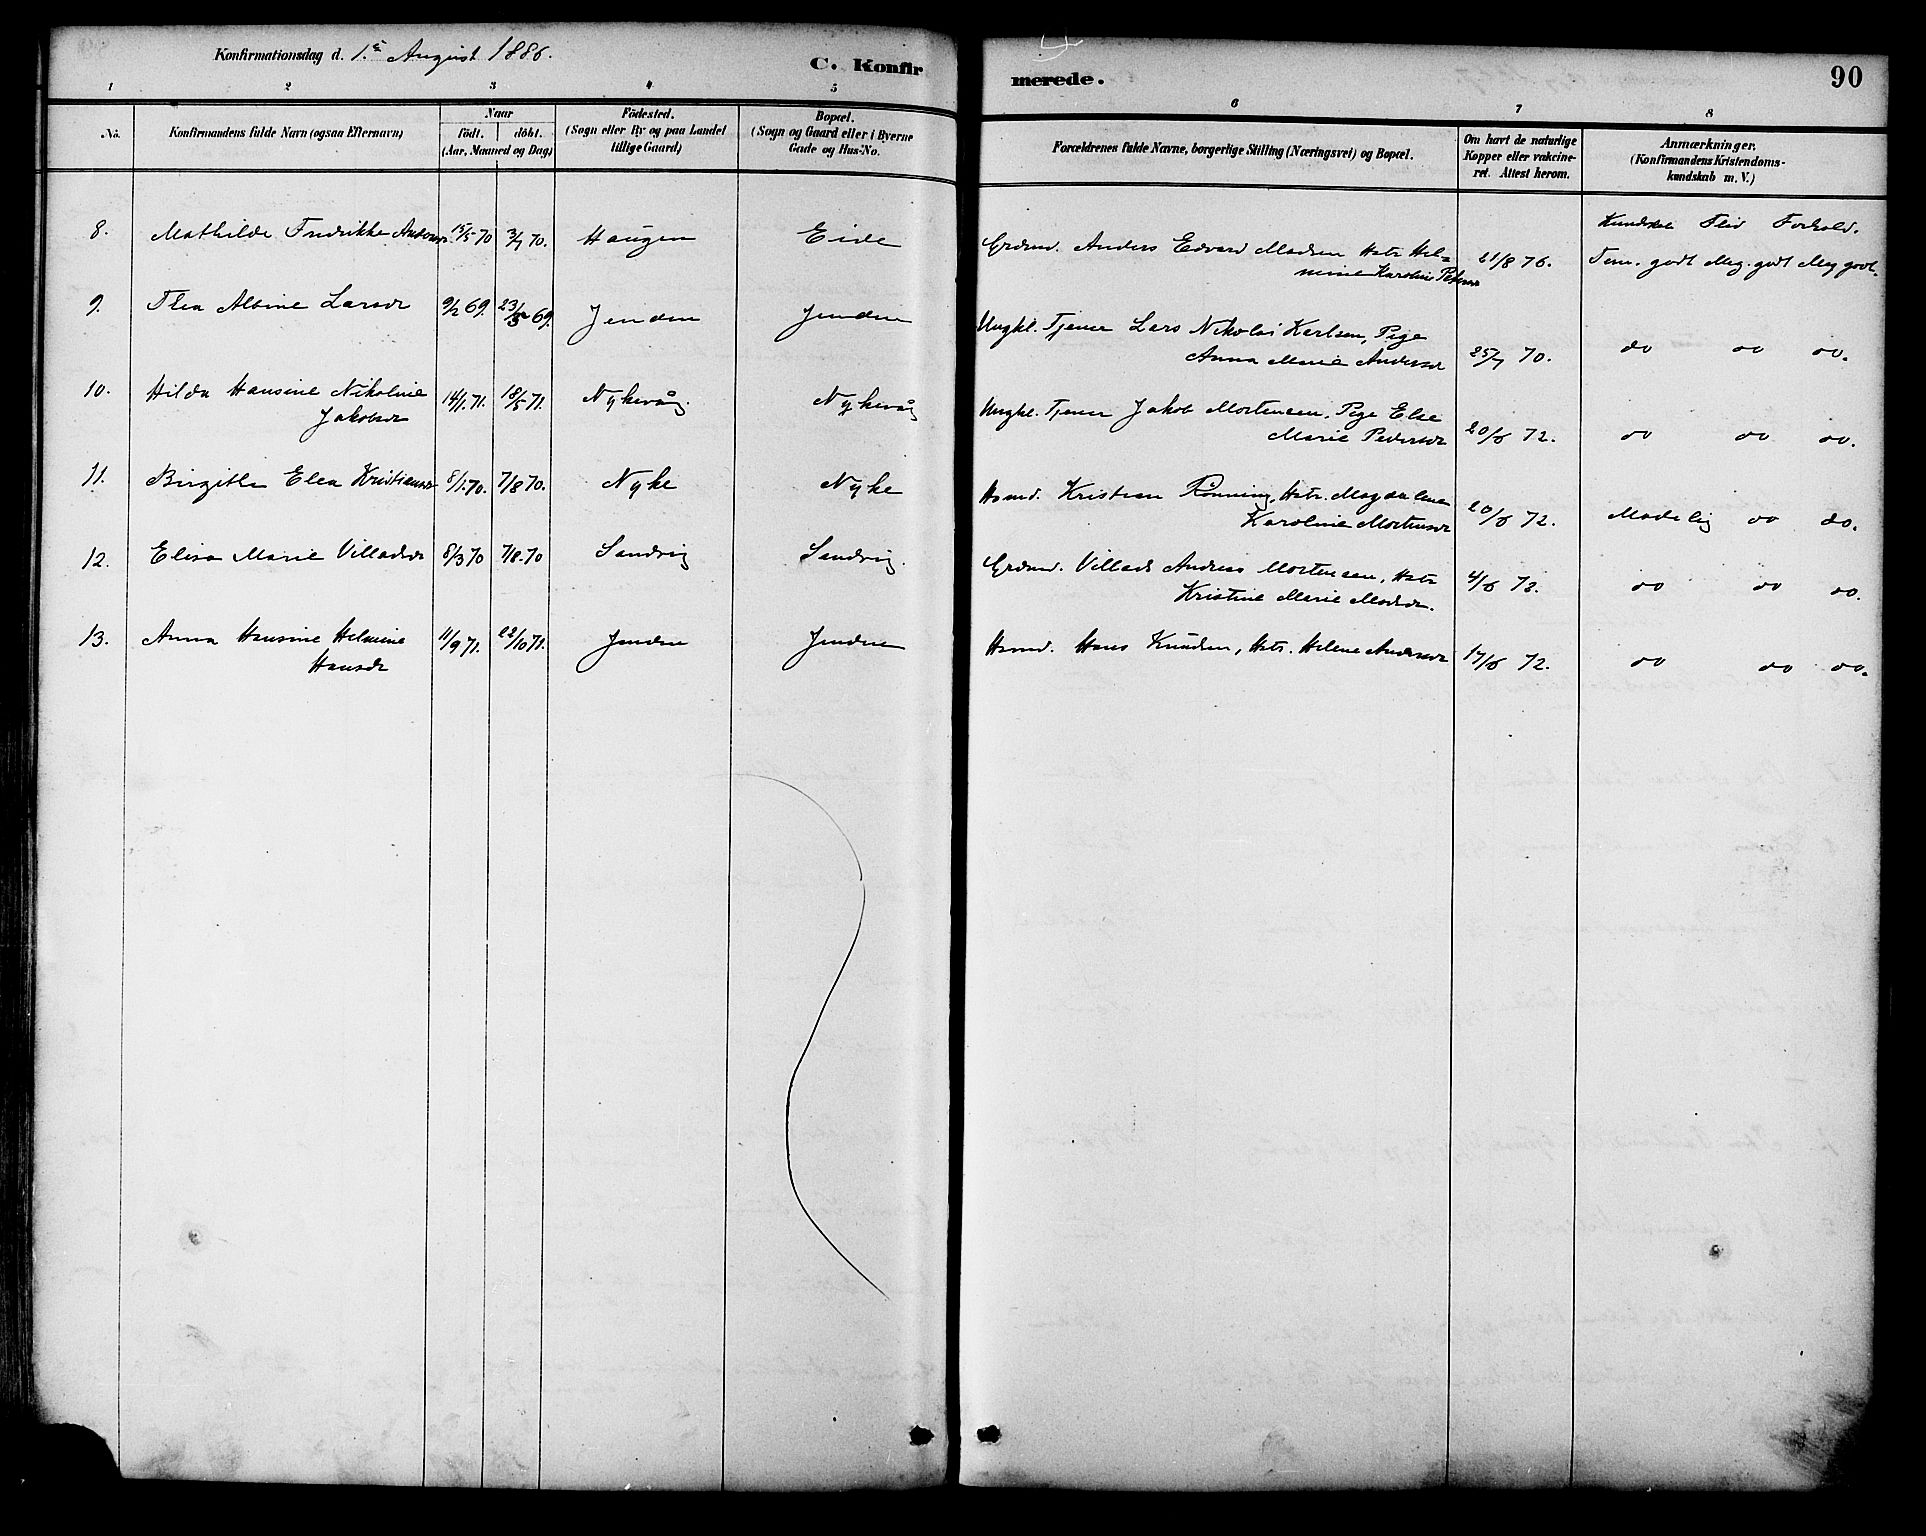 Konfirmationsdag d. 1.ste August 1886.
C. Konfir
merede.
90
1 2 3 4 5 6 7 8
No.
Konfirmandens fulde Navn (ogsaa Efternavn)
Naar
födt. döbt.
(Aar, Maaned og Dag)
Födested.
(Sogn eller By og paa Landet
tillige Gaard)
Bopæl.
(Sogn og Gaard eller i Byerne
Gade og Hus-No.
Forældrenes fulde Navne, borgerlige Stilling (Næringsvei) og Bopæl.
Om havt de naturlige
Kopper eller vakcine-
ret. Attest herom.
Anmærkninger.
(Konfirmandens Kristendoms-
kundskab m. V.)
Kundskab Flid Forhold.
8. Mathilde Fredrikke Andersdr 15/5 70 3/7 70. Haugen Eide Grdmd. Anders Edvard Madsen Hstr Hel-
mine Karoline Pedersdr 21/8 76. Tem. godt Meg. godt Meg godt.
9. Thea Albine Larsdr 9/2 69. 23/5 69. Jenden Jenden Ungkl. Tjener Lars Nikolai Karlsen, Pige
Anna Marie Andersdr 25/7 70. do do do.
10. Hilda Hansine Nikoline
Jakobsdr 14/1. 71. 18/5 71. Nykvåg Nykvåg Ungkl. Tjener Jakob Mortensen, Pige Else
Marie Pedersdr 20/6 72. do do do.
11. Birgithe Elea Kristiansdr 8/1. 70. 7/8 70. Nyke Nyke Hsmd. Kristian Rönning, Hstr. Magdalena
Karoline Mortensdr 20/6 72. Madelig do do.
12. Elisa Marie Villadsdr 8/3 70 7/8-70 Sandvig Sandvig. Grdmd. Villads Andreas Mortensen, Hstr
Kristine Marie Madsdr. 4/6 72. do do do.
13. Anna Hansine Helmine
Hansdr 11/9 71. 22/10 71. Jenden Jenden Hsmd. Hans Knudsen, Hstr. Helene Andersdr 17/6 72. do do do.